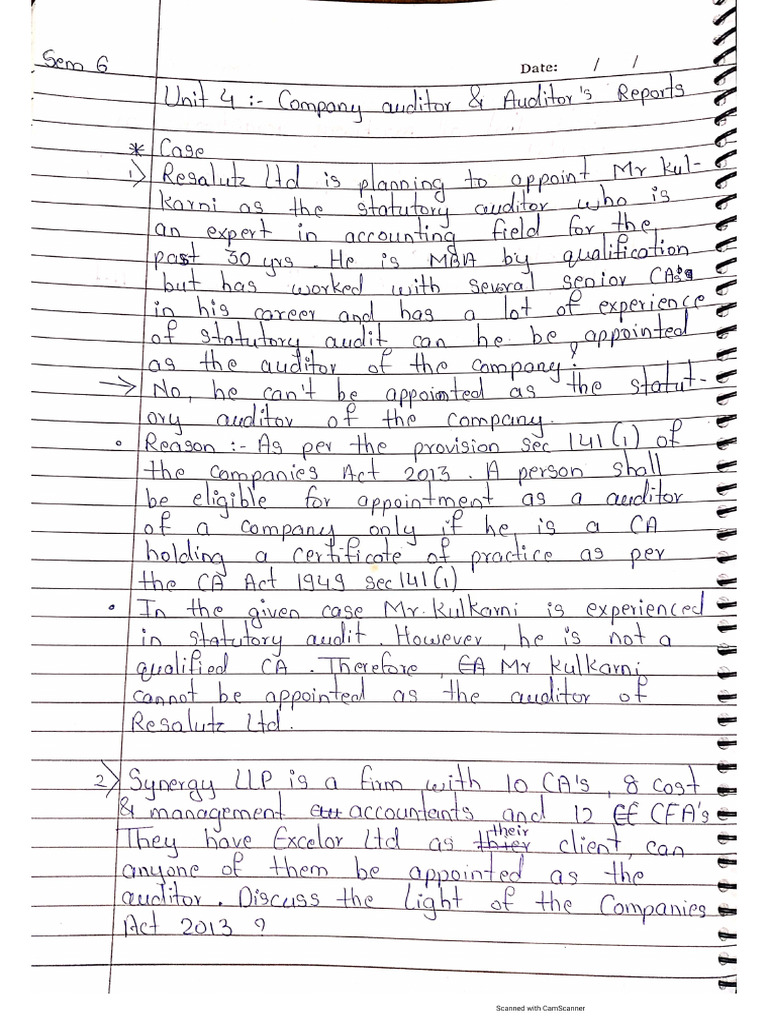 Sem 6
Date: / /
Unit 4 :- Company auditor & Auditor's Reports
* Case
1) Resalutz Ltd is planning to appoint Mr Kul-
karni as the statutory auditor who is
an expert in accounting field for the
past 30 yrs. He is MBA by qualification
but has worked with several senior CA's
in his career and has a lot of experience
of statutory audit can he be appointed
as the auditor of the company?
→ No, he can't be appointed as the statut-
ory auditor of the company.
• Reason :- As per the provision sec 141(1) of
the companies Act 2013. A person shall
be eligible for appointment as a auditor
of a company only if he is a CA
holding a certificate of practice as per
the CA Act 1949 sec 141(1)
• In the given case Mr. Kulkarni is experienced
in statutory audit. However, he is not a
qualified CA. Therefore, Mr Kulkarni
cannot be appointed as the auditor of
Resalutz Ltd.
2) Synergy LLP is a firm with 10 CA's, 8 cost
& management accountants and 12 CFA's
They have Excelor Ltd as their client, can
anyone of them be appointed as the
auditor. Discuss the light of the Companies
Act 2013 ?
Scanned with CamScanner